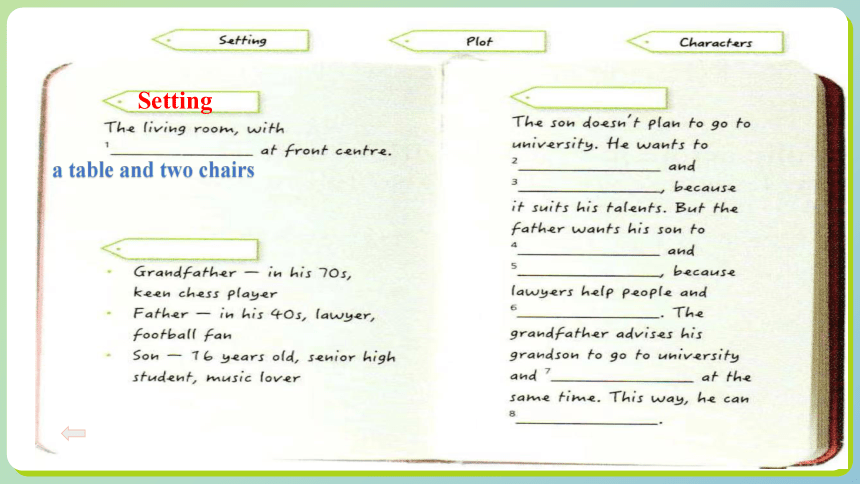 Setting
Plot
Characters
Setting
The living room, with
1______________ at front centre.
a table and two chairs
• Grandfather — in his 70s,
keen chess player
• Father — in his 40s, lawyer,
football fan
• Son — 16 years old, senior high
student, music lover
The son doesn't plan to go to
university. He wants to
2______________ and
3______________, because
it suits his talents. But the
father wants his son to
4______________ and
5______________, because
lawyers help people and
6______________. The
grandfather advises his
grandson to go to university
and 7______________ at the
same time. This way, he can
8______________.